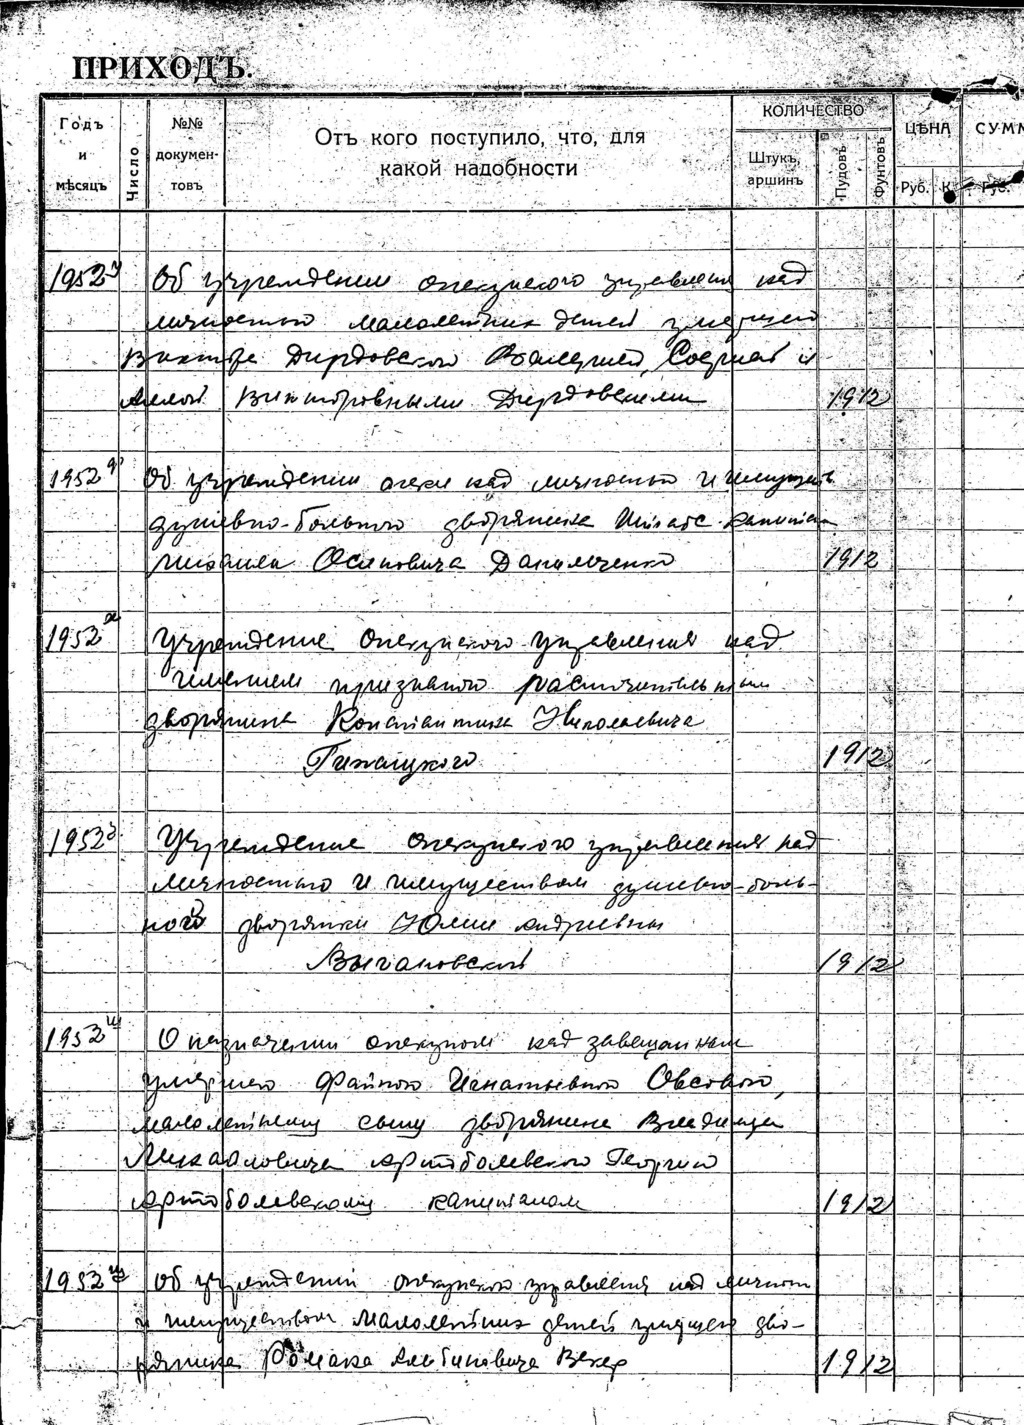 ПРИХОДЪ.
Годъ и мѣсяцъ
Число
№№ докумен-товъ
Отъ кого поступило, что, для какой надобности
КОЛИЧЕСТВО
Штукъ, аршинъ
Пудовъ
Фунтовъ
ЦѢНА
Руб. К.
СУММ
Руб.
1952 у Об учреждении опекунского управления над
личностью малолетних детей умершего
Виктора Дирдовского Валерией, Софией и
Аллой Викторовными Дирдовскими 1912
1952 ф Об учреждении опеки над личностью и имуществ
душевно-больного дворянина Штабс-капитан
Михаила Осиповича Данильченко 1912
1952 Учреждение Опекунского Управления над
имением призванного расточительным
дворянина Константина Николаевича
Гижицкого 1912
1952 Учреждение опекунского управления над
личностью и имуществом душевно-боль-
ной дворянки Юлии Андриевны
Выгановской 1912
1952 ш О назначении опекуном над завещанным
умершего Игнатьевного Овсового,
малолетнему сыну дворянина Владимира
Михайловича Артоболевского Георгию
Артоболевскому капиталом 1912
1952 щ Об учреждении опекунского управления над личност
и имуществом малолетних детей умершего дво-
рянина Романа Альбиновича Векер 1912